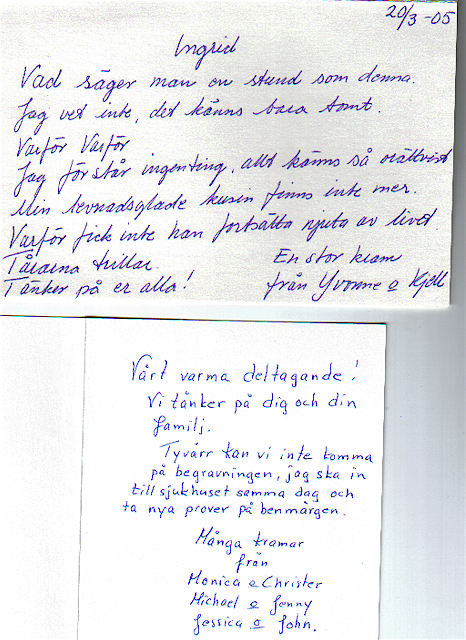 20/3 -05
Ingrid
Vad säger man en stund som denna.
Jag vet inte, det känns bara tomt.
Varför Varför
Jag förstår ingenting, allt känns så orättvist
Min levnadsglade kusin finns inte mer.
Varför fick inte han fortsätta njuta av livet.
Tårarna trillar
Tänker på er alla!
En stor kram
från Yvonne o Kjell
Vårt varma deltagande!
Vi tänker på dig och din
familj.
Tyvärr kan vi inte komma
på begravningen, jag ska in
till sjukhuset samma dag och
ta nya prover på benmärgen.
Många kramar
från
Monica o Christer
Michael o Jenny
Jessica o John.